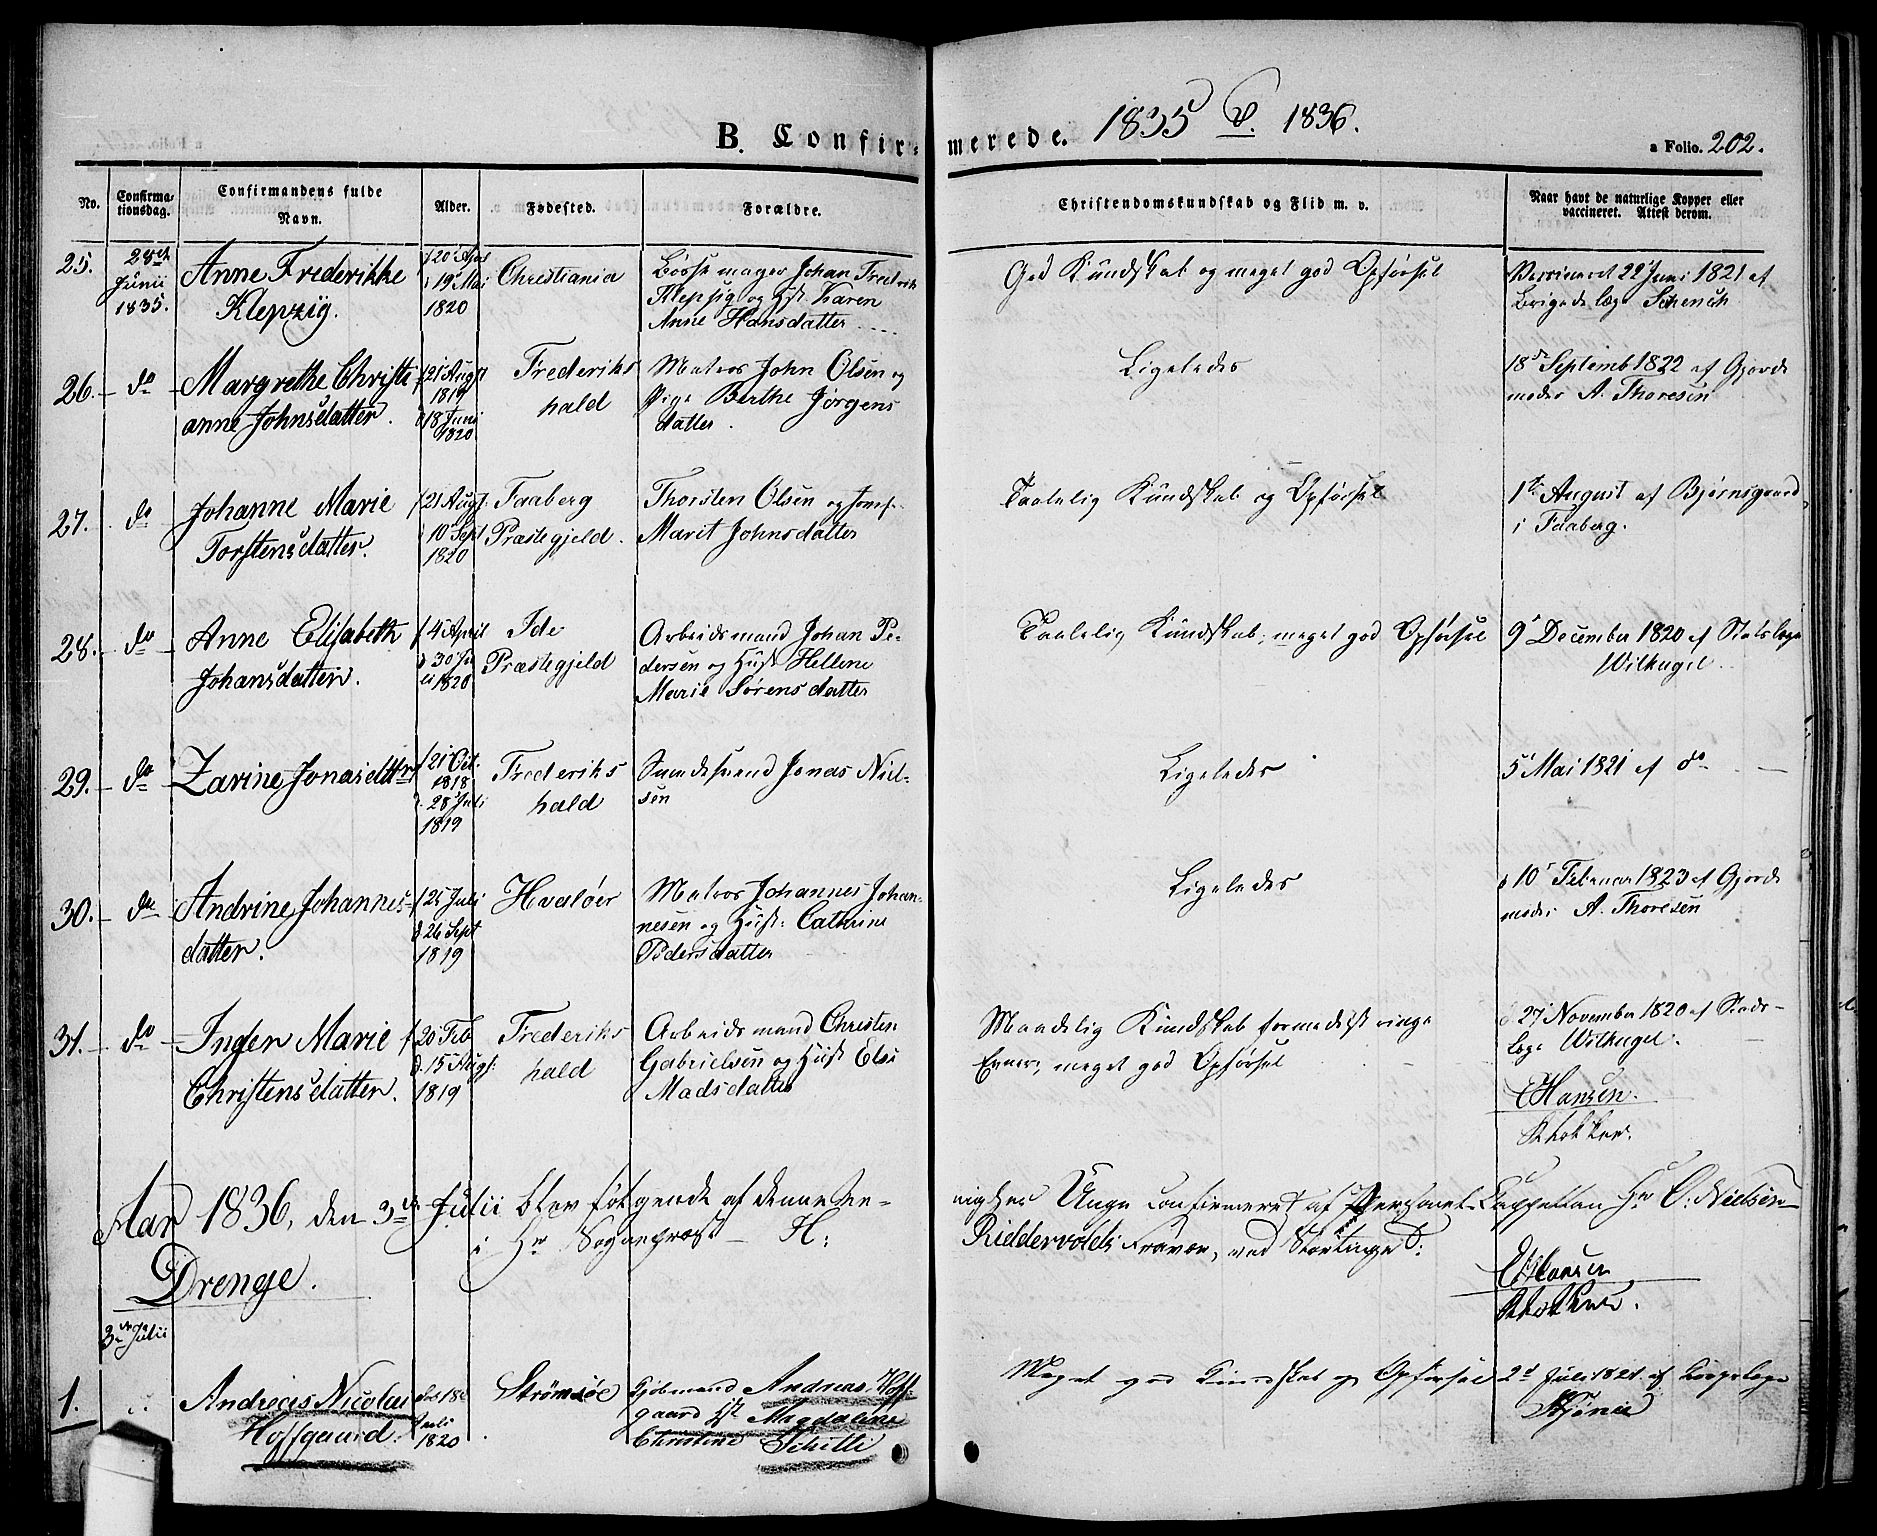 B. Confir- merede. 1835 & 1836.
a Folio. 202.
No.
Confirma-
tionsdag.
Confirmandens fulde
Navn.
Alder.
Fødested.
Forældre.
Christendomskundskab og Flid m. v.
Naar havt de naturlige Kopper eller
vaccineret. Attest derom.
25.
28de
Junii
1835.
Anne Frederikke
Klepzig.
f 20 Apr
d 19 Mai
1820
Christiania
Bøssemager Johan Frederik
Klepzig og Hust Karen
Anne Hansdatter
God Kundskab og meget god Opførsel
Vaccineret 22 Juni 1821 af
Brigadelæge Schench
26. do
Margrethe Christi
anne Johnsdatter.
f 21 Augt
1819
d 18 Juni
1820
Frederiks
hald
Matros John Olsen og
Pige Berthe Jørgens
datter
Ligeledes
18de Septemb 1822 af Gjorde
moder A. Thoresen
27. do
Johanne Marie
Torstensdatter.
f 21 Augt
d 10 Sept
1820
Faaberg
Præstegjeld.
Thorsten Olsen og
Marit Johnsdatter
Taalelig Kundskab og Opførsel
1ste August af Bjørnsgaard
i Faaberg.
28. do
Anne Elisabeth
Johansdatter.
f 4 April
d 30 Ju
li 1820
Ide
Præstegjeld
Arbeidsmand Johan Pe-
dersen og Hust Hellene
Marie Sørensdatter
Taalelig Kundskab, meget god Opførsel
9 December 1820 af Stadslæge
Wilhugel
29. do
Zarine Jonasdttr
f 21 Oct.
1818
d. 28 Juli
1819
Frederiks
hald
Jonas Niel-
sen
Ligeledes
5 Mai 1821 af do
30. do
Andrine Johannes-
datter.
f 25 Juli
d 26 Sept
1819
Hvaløer
Matros Johannes Johan-
nesen og Hust: Cathrine
Pedersdatter
Ligeledes
d 10 Februar 1823 af Gjorde
moder A. Thoresen
31. do
Inger Marie
Christensdatter.
f 20 Feb
d. 15 Augt:
1819
Frederiks
hald
Arbeidsmand Christen
Gabrielsen og Hust Elsi
Madsdatter
Maadelig Kundskab formedelst ringe
Evner, meget god Opførsel
d 27 November 1820 af Stads-
læge Wilhugel.
CHansen.
Klokker.
Aar 1836, den 3de Julii blev følgende af denne Me-
nigheds Unge confirmeret af Personel Cappellan Hr C: Nielsen
i Hr Sogneprost H:
Riddervolds Fravær, ved Stortinget:
CHansen
Klokker.
Drenge.
3de Julii
1.
Andreas Nicolai
Hoffgaard.
Juli
1820
Strømsøe
Kjøbmand Andreas Hoff-
gaard Hst Magdalene
Christine Schitte
Meget god Kundskab og Opførsel
2d Juli 1821 af Corpslæge